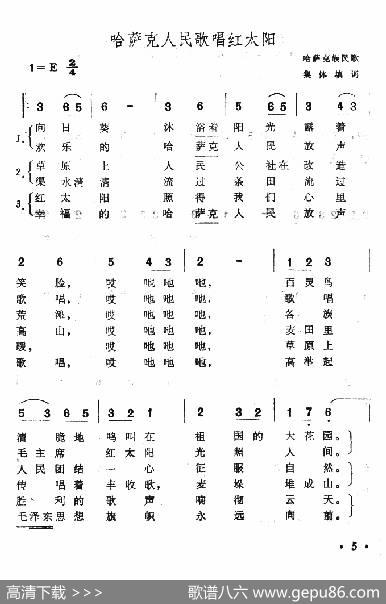 哈萨克人民歌唱红太阳
1=E 2/4
哈萨克族民歌
集体填词
3 6 5 | 6 - | 3 6 5 6 5
1. 向日葵 沐浴着阳光 露着
欢乐的 哈萨克人民 放声
2. 草原上 人民公社在 改造
渠水清清 流过条田 流过
3. 红太阳 照得我们 心里
幸福的 哈萨克人民 放声
2 6 | 5 4 3 | 2 - | 1 2 3
笑脸, 哎吔吔吔, 百灵鸟
歌唱, 哎吔吔吔, 歌唱
荒滩, 哎吔吔吔, 各族
高山, 哎吔吔吔, 麦田里
暖, 哎吔吔吔, 草原上
歌唱, 哎吔吔吔, 高举起
5 3 6 5 | 3 2 1 | 2 2 2 1 | 1 7 6
清脆地 鸣叫在 祖国的 大花园。
毛主席 红太阳 光照 人间。
人民团结 一心 征服 自然。
传唱着 丰收歌, 麦垛 堆成山。
胜利的 歌声 响彻 云天。
毛泽东思想 旗帜 永远 向前。
· 5 ·
高清下载 > 歌谱八六 www.gepu86.com